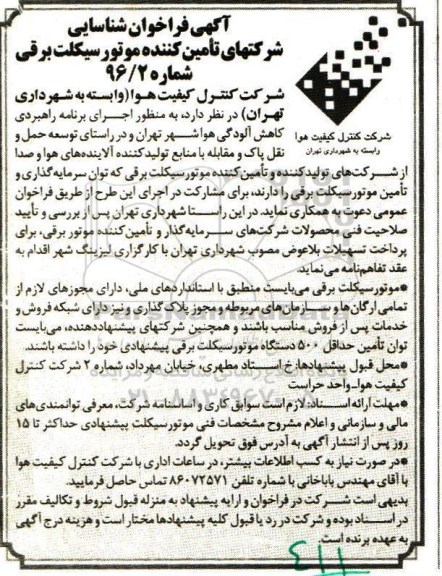 آگهی فراخوان شناسایی
شرکتهای تأمین کننده موتور سیکلت برقی
شماره ۹۶/۲
شرکت کنترل کیفیت هوا
وابسته به شهرداری تهران
شرکت کنترل کیفیت هوا (وابسته به شهرداری
تهران) در نظر دارد، به منظور اجرای برنامه راهبردی
کاهش آلودگی هوا شهر تهران و در راستای توسعه حمل و
نقل پاک و مقابله با منابع تولیدکننده آلاینده‌های هوا و صدا
از شرکت‌های تولیدکننده و تأمین کننده موتورسیکلت برقی که توان سرمایه‌گذاری و
تأمین موتورسیکلت برقی را دارند، برای مشارکت در اجرای این طرح از طریق فراخوان
عمومی دعوت به همکاری نماید. در این راستا شهرداری تهران پس از بررسی و تأیید
صلاحیت فنی محصولات شرکت‌های سرمایه‌گذار و تأمین کننده موتور برقی، برای
پرداخت تسهیلات بلاعوض مصوب شهرداری تهران با کارگزاری لیزینگ شهر اقدام به
عقد تفاهم‌نامه می‌نماید.
*موتورسیکلت برقی می‌بایست منطبق با استانداردهای ملی، دارای مجوزهای لازم از
تمامی ارگان‌ها و سازمان‌های مربوطه و مجوز پلاک گذاری و نیز دارای شبکه فروش و
خدمات پس از فروش مناسب باشند و همچنین شرکتهای پیشنهاددهنده، می‌بایست
توان تأمین حداقل ۵۰۰ دستگاه موتورسیکلت برقی پیشنهادی خود را داشته باشند.
*محل قبول پیشنهادها: خ استاد مطهری، خیابان مهرداد، شماره ۲ شرکت کنترل
کیفیت هوا-واحد حراست
*مهلت ارائه اسناد: لازم است سوابق کاری و اساسنامه شرکت، معرفی توانمندی‌های
مالی و سازمانی و اعلام مشروح مشخصات فنی موتورسیکلت پیشنهادی حداکثر تا ۱۵
روز پس از انتشار آگهی به آدرس فوق تحویل گردد.
*در صورت نیاز به کسب اطلاعات بیشتر، در ساعات اداری با شرکت کنترل کیفیت هوا
با آقای مهندس باباخانی با شماره تلفن ۸۶۰۷۲۵۷۱ تماس حاصل فرمایید.
بدیهی است شرکت در فراخوان و ارایه پیشنهاد به منزله قبول شروط و تکالیف مقرر
در اسناد بوده و شرکت در رد یا قبول کلیه پیشنهادها مختار است و هزینه درج آگهی
به عهده برنده است.